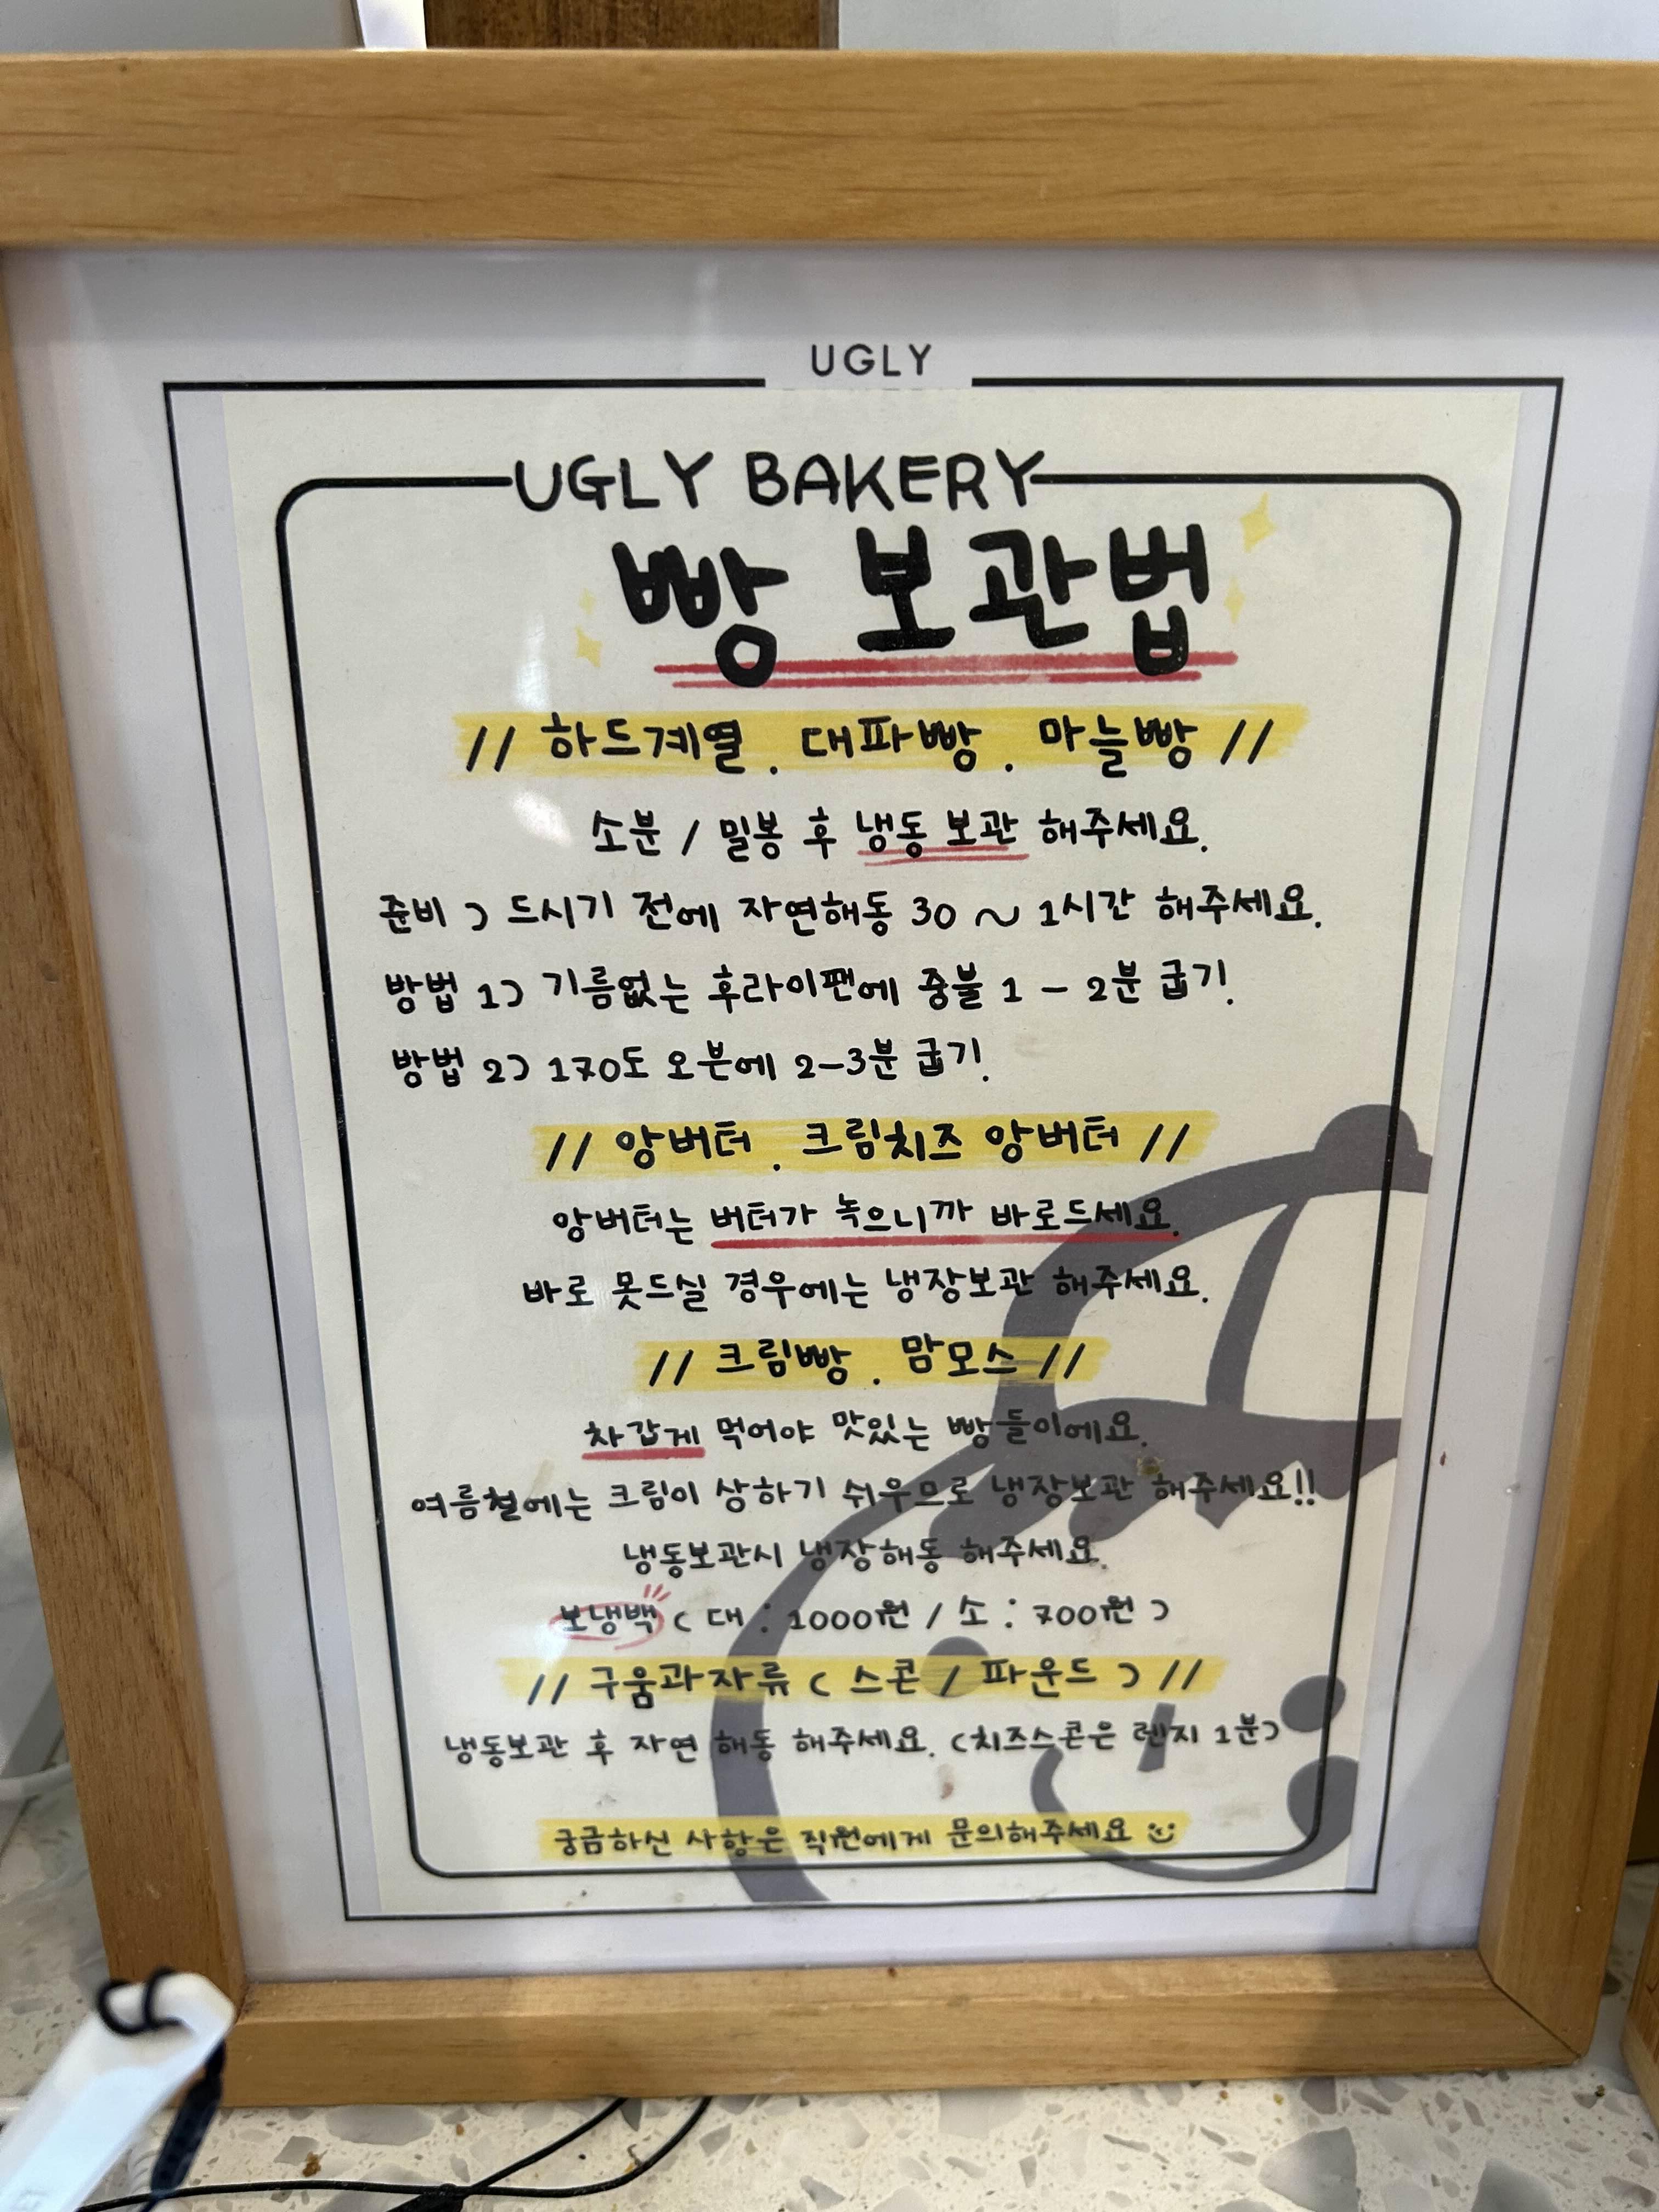 UGLY
UGLY BAKERY
빵 보관법
// 하드계열 . 대파빵 . 마늘빵 //
소분 / 밀봉 후 냉동 보관 해주세요.
준비 ) 드시기 전에 자연해동 30 ~ 1시간 해주세요.
방법 1) 기름없는 후라이팬에 중불 1 - 2분 굽기.
방법 2) 170도 오븐에 2-3분 굽기.
// 앙버터 . 크림치즈 앙버터 //
앙버터는 버터가 녹으니까 바로드세요.
바로 못드실 경우에는 냉장보관 해주세요.
// 크림빵 . 맘모스 //
차갑게 먹어야 맛있는 빵들이에요.
여름철에는 크림이 상하기 쉬우므로 냉장보관 해주세요!!
냉동보관시 냉장해동 해주세요.
보냉백 ( 대 : 1000원 / 소 : 700원 )
// 구움과자류 ( 스콘 / 파운드 ) //
냉동보관 후 자연 해동 해주세요. (치즈스콘은 렌지 1분)
궁금하신 사항은 직원에게 문의해주세요